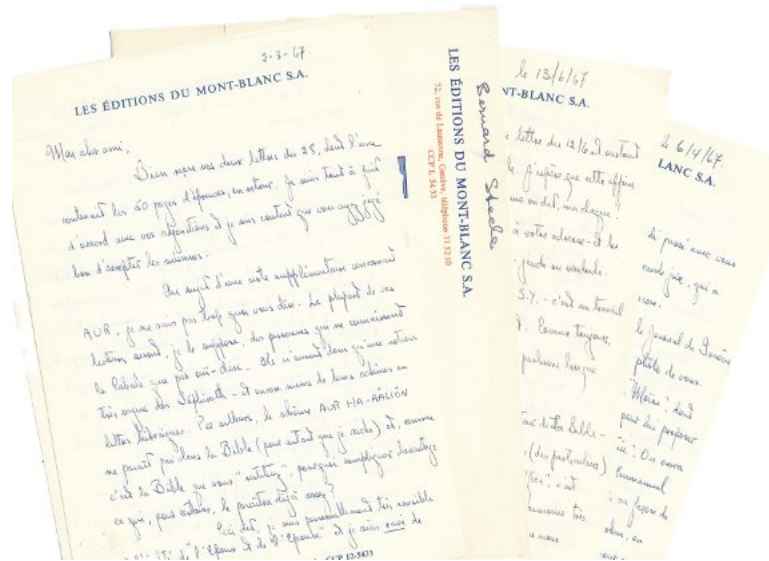 3-3-67.
LES ÉDITIONS DU MONT-BLANC S.A.
Mon cher ami,
Bien reçu vos deux lettres du 28, dont l'une
contenant les 60 pages d'épreuves, en retour. Je suis tout à fait
d'accord avec vos et je suis content que vous ayez jugé
bon d'accepter les miennes.
Au sujet d'une note supplémentaire concernant
AUR, je ne sais pas trop quoi vous dire. La plupart de vos
lecteurs seront, je le suppose, des personnes qui ne connaissent
la Cabale que par ouï-dire. Ils n'auront donc qu'une notion
très vague des Séphiroth - et encore moins de leurs schèmes en
lettres hébraïques. Par ailleurs, le schème AUR HA-AÀLIÔN
ne paraît pas dans la Bible (pour autant que je sache) et, comme
c'est la Bible que vous "restituez", pourquoi compliquer davantage
ce qui, pour certains, le paraîtra déjà assez?
Ceci dit, je suis personnellement très sensible
de l'"Epoux et de l'"Epouse" et je suis de
CCP 12-5433
Bernard Steele
LES ÉDITIONS DU MONT-BLANC S.A.
72, rue de Lausanne, Genève, téléphone 31 52 30
CCP I. 5433
le 13/6/67
NT-BLANC S.A.
lettre du 12/6 et
J'espère que cette affaire
me on dit, ma claque!
à votre adresse - et les
- jeudi ou vendredi.
S.Y. - c'est un travail
Comme toujours,
langue
de la Bible -
(des particuliers)
très
nous
le 6/4/67.
LANC S.A.
passé avec vous
joie, qui a
le Journal de Genève
de vous.
"Moïse", dont
pour lui proposer
On aura
Emmanuel
façon de